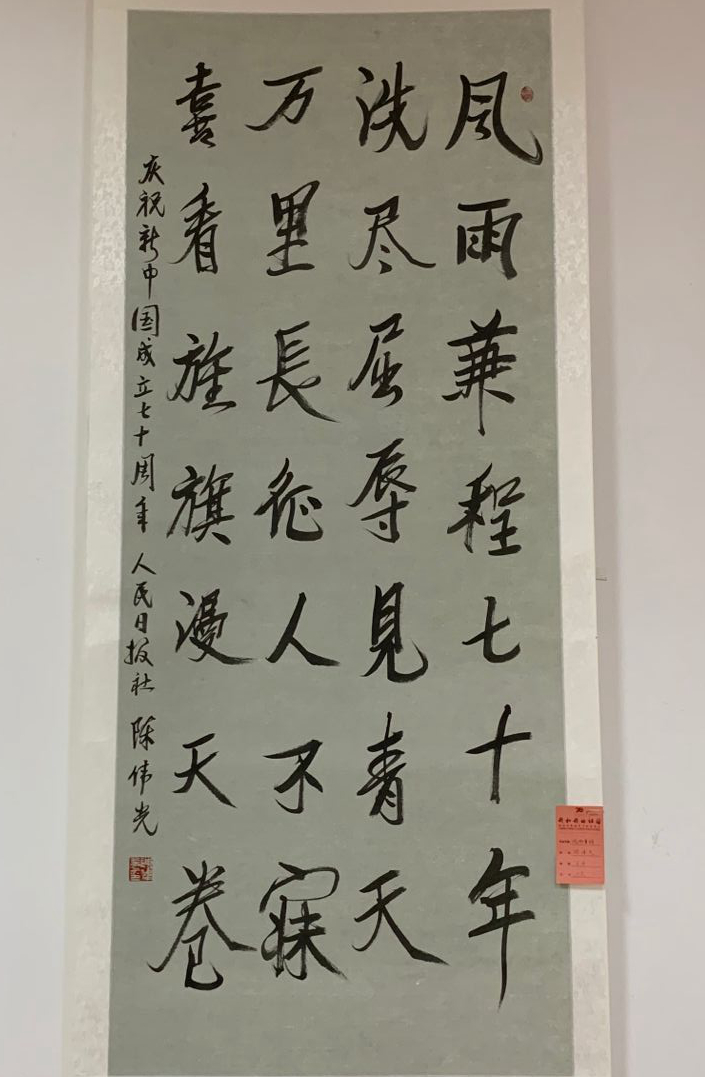 风雨兼程七十年
洗尽屈辱见青天
万里長征人不寐
喜看旌旗漫天卷
庆祝新中国成立七十周年 人民日报社 陈伟光